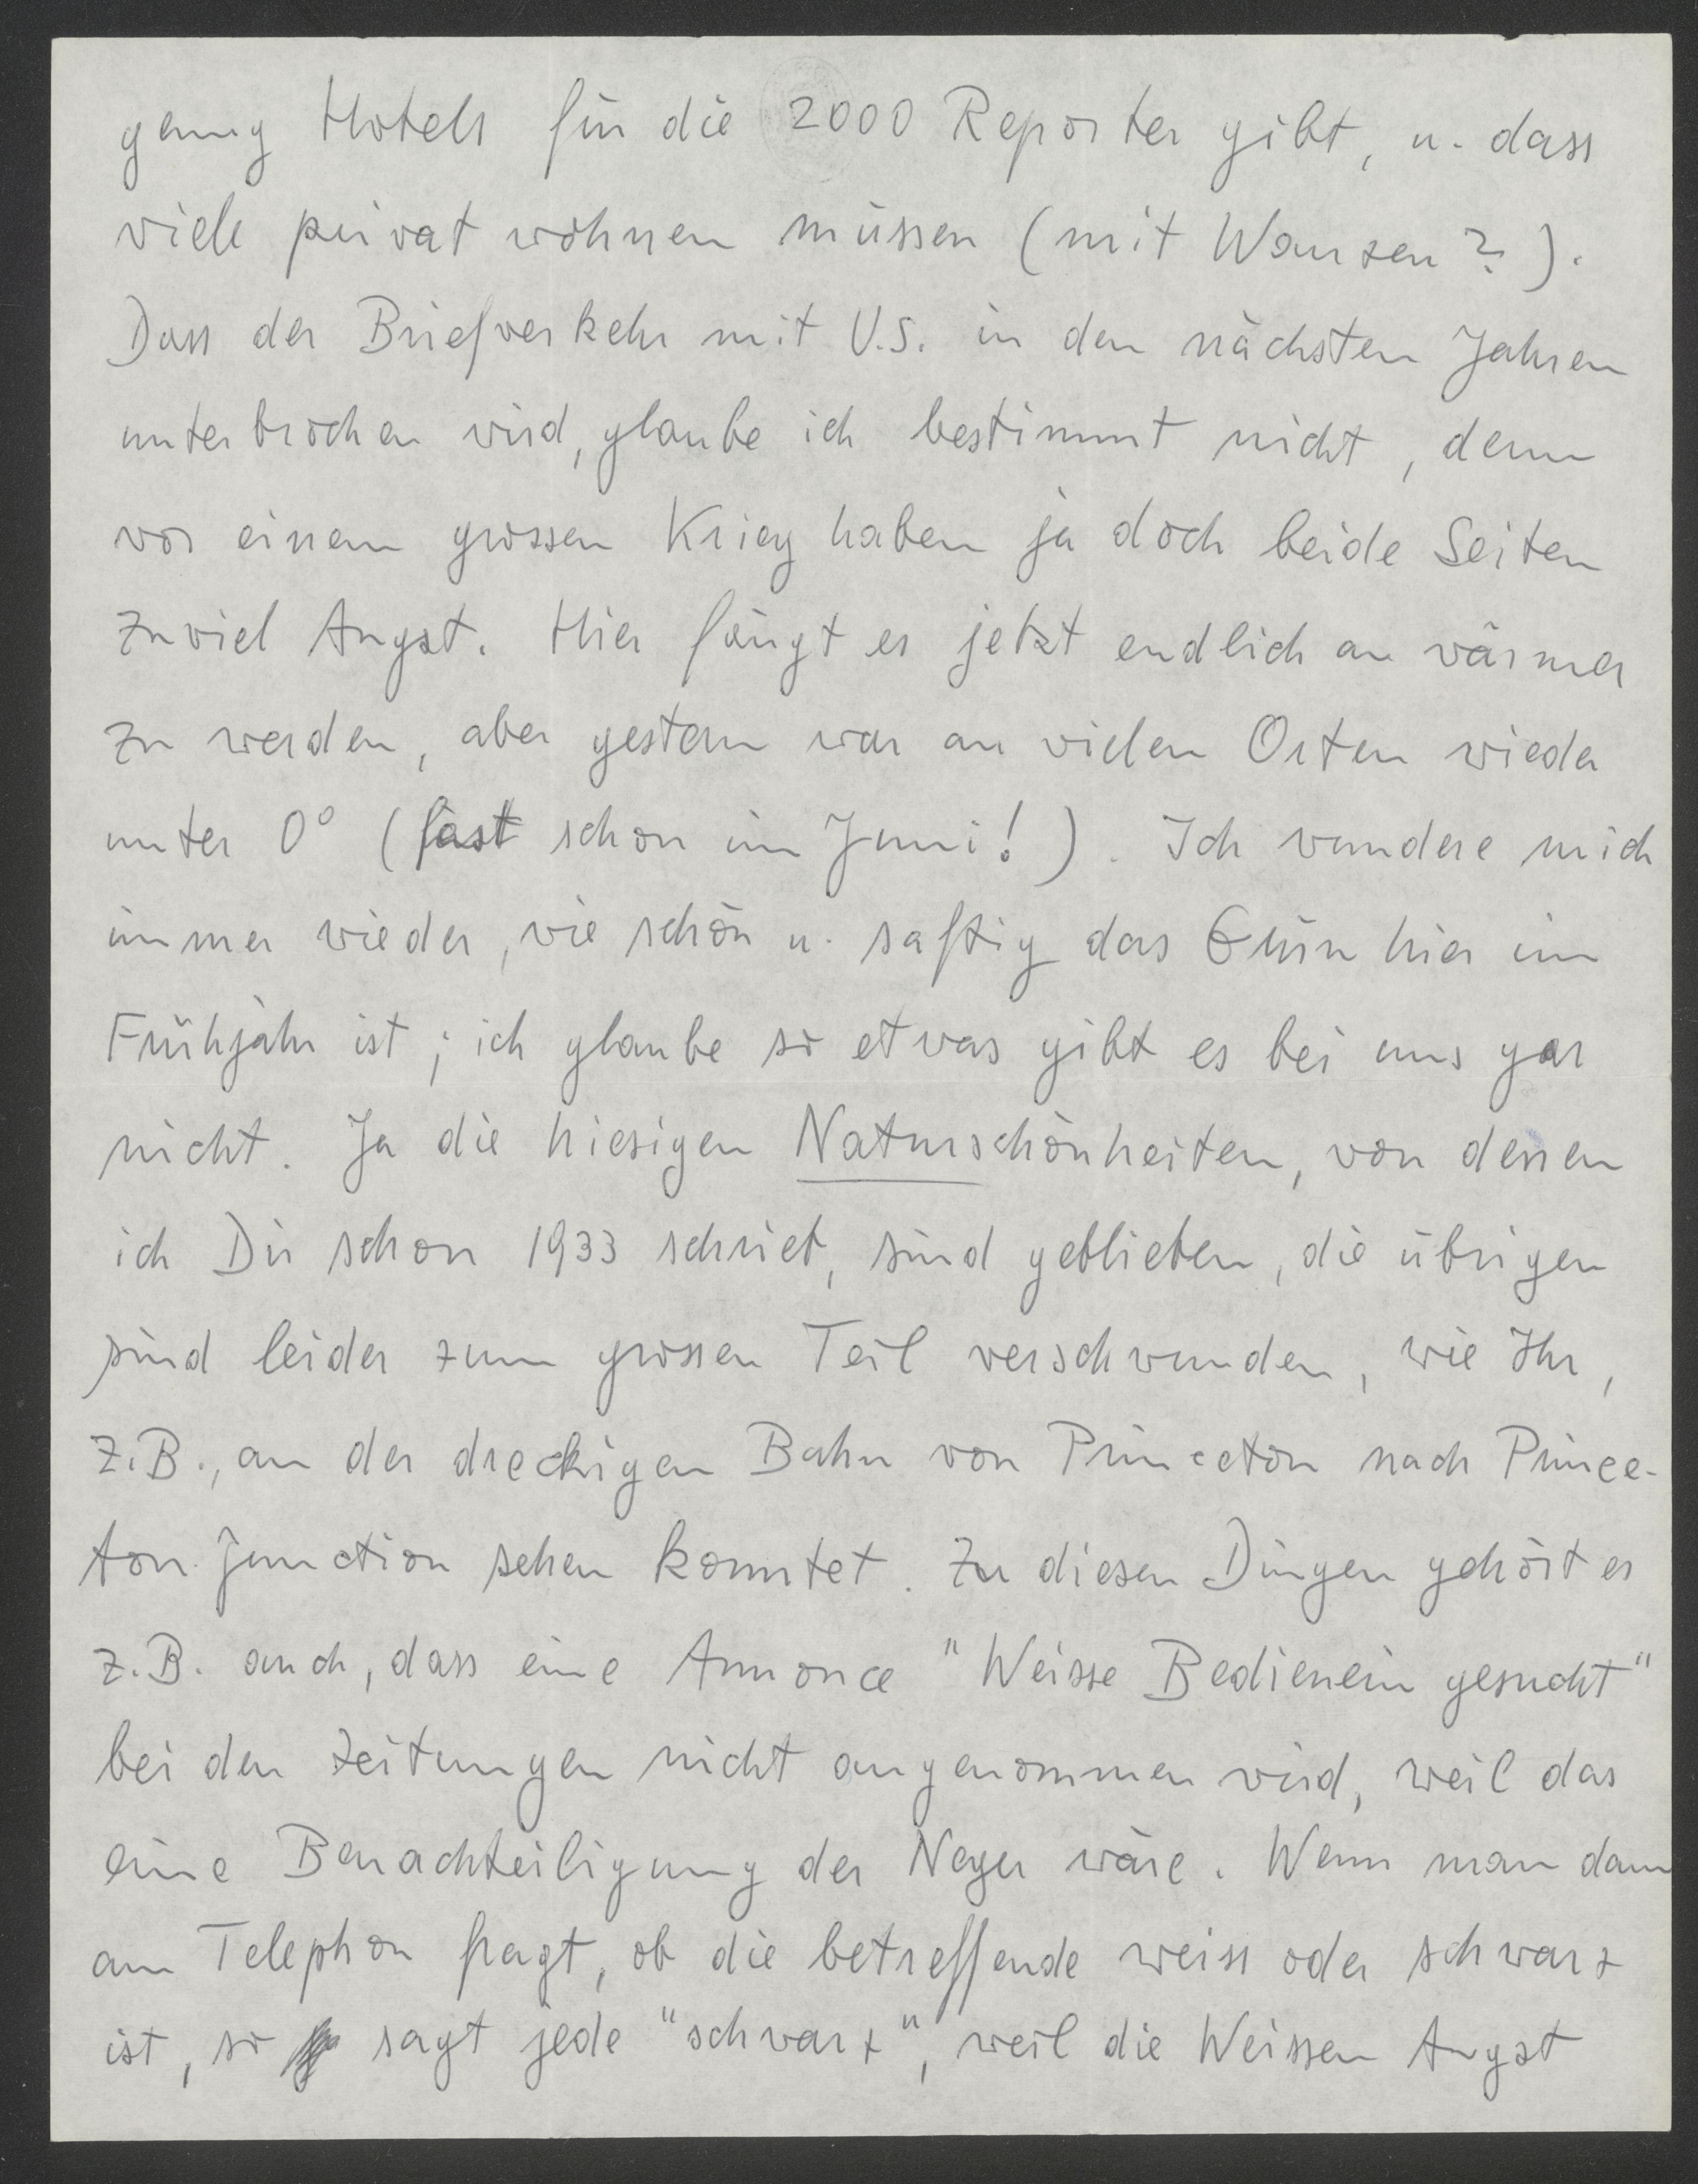 genug Hotels für die 2000 Reporter gibt, u. dass
viele privat wohnen müssen (mit Wanzen?).
Dass der Briefverkehr mit U.S. in den nächsten Jahren
unterbrochen wird, glaube ich bestimmt nicht, denn
vor einem grossen Krieg haben ja doch beide Seiten
zuviel Angst. Hier fängt es jetzt endlich an wärmer
zu werden, aber gestern war an vielen Orten wieder
unter 0° (fast schon im Juni!). Ich wundere mich
immer wieder, wie schön u. saftig das Grün hier im
Frühjahr ist; ich glaube so etwas gibt es bei uns gar
nicht. Ja die hiesigen Naturschönheiten, von denen
ich Dir schon 1933 schrieb, sind geblieben, die übrigen
sind leider zum grossen Teil verschwunden, wie Ihr,
z.B., an der dreckigen Bahn von Princeton nach Prince-
ton Junction sehen konntet. Zu diesen Dingen gehört es
z.B. auch, dass eine Annonce "Weisse Bedienerin gesucht"
bei den Zeitungen nicht angenommen wird, weil das
eine Benachteiligung der Neger wäre. Wenn man dann
am Telephon fragt, ob die betreffende weiss oder schwarz
ist, so sagt jede "schwarz", weil die Weissen Angst